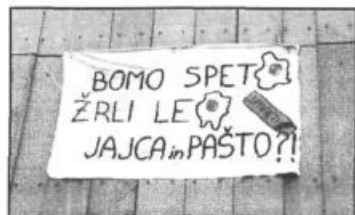 BOMO SPET
ŽRLI LE
JAJCA in PAŠTO?!